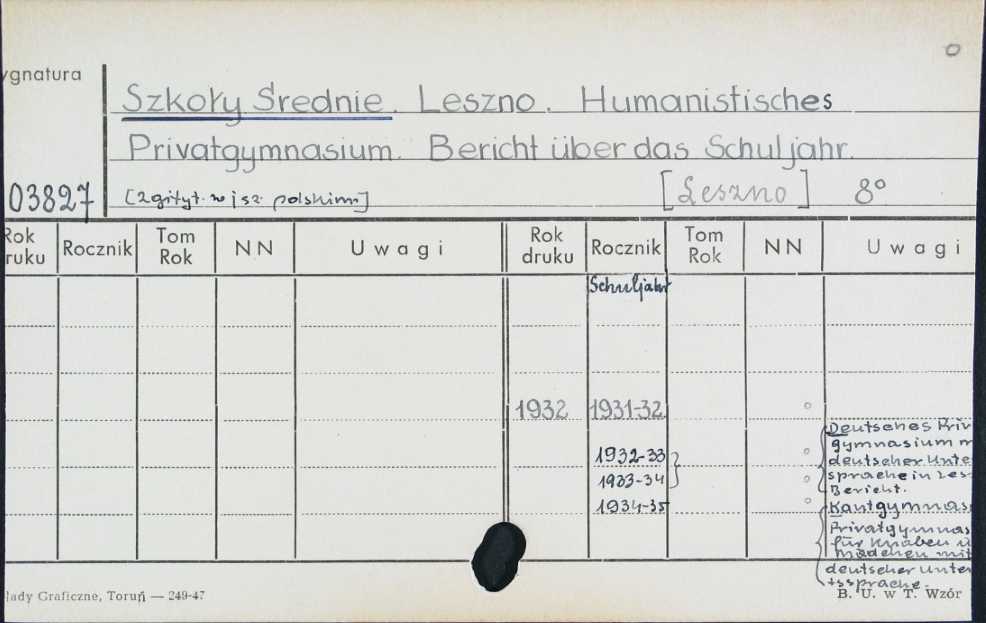 ygnatura
Szkoły Średnie. Leszno. Humanistisches
Privatgymnasium. Bericht über das Schuljahr.
03827 [zgłtyt. w jęz. polskim] [Leszno] 8°
Rok druku Rocznik Tom Rok NN Uwagi Rok druku Rocznik Tom Rok NN Uwagi
Schuljahr
1932 1931-32
Deutsches Priv
gymnasium m
1932-33 deutscher Unte
1933-34 sprache in Les
Bericht.
1934-35 Kantgymnas
Privatgymnas
für Knaben u
Mädchen mit
deutscher Unter
tssprache.
łady Graficzne, Toruń — 249-47
B. U. w T. Wzór